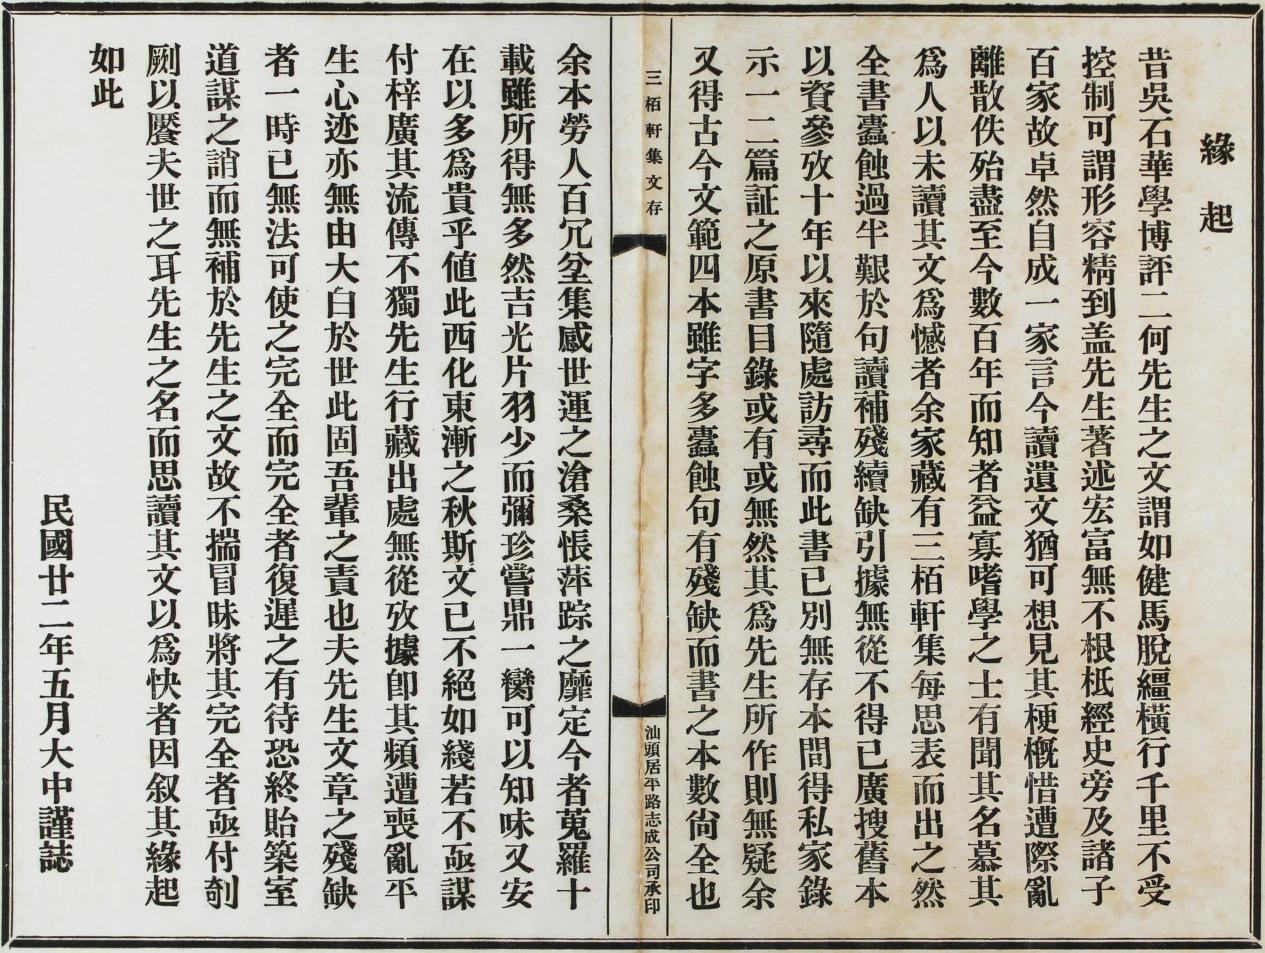 緣起
昔吳石華學博評二何先生之文謂如健馬脫繮橫行千里不受
控制可謂形容精到盖先生著述宏富無不根柢經史旁及諸子
百家故卓然自成一家言今讀遺文猶可想見其梗槪惜遭際亂
離散佚殆盡至今數百年而知者益寡嗜學之士有聞其名慕其
爲人以未讀其文爲憾者余家藏有三栢軒集每思表而出之然
全書蠹蝕過半艱於句讀補殘續缺引據無從不得已廣搜舊本
以資參攷十年以來隨處訪尋而此書已別無存本間得私家錄
示一二篇証之原書目錄或有或無然其爲先生所作則無疑余
又得古今文範四本雖字多蠹蝕句有殘缺而書之本數尙全也
三栢軒集文存
汕頭居平路志成公司承印
余本勞人百冗坌集感世運之滄桑悵萍踪之靡定今者蒐羅十
載雖所得無多然吉光片羽少而彌珍嘗鼎一臠可以知味又安
在以多爲貴乎値此西化東漸之秋斯文已不絕如綫若不亟謀
付梓廣其流傳不獨先生行藏出處無從攷據卽其頻遭喪亂平
生心迹亦無由大白於世此固吾輩之責也夫先生文章之殘缺
者一時已無法可使之完全而完全者復遲之有待恐終貽築室
道謀之誚而無補於先生之文故不揣冒昧將其完全者亟付剞
劂以饜夫世之耳先生之名而思讀其文以爲快者因叙其緣起
如此
民國廿二年五月大中謹誌